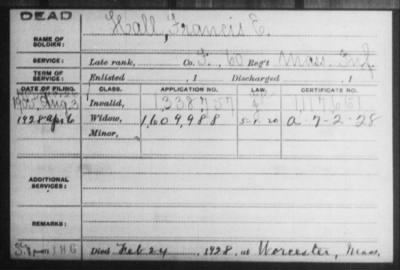 DEAD
NAME OF SOLDIER: Hall, Francis E.
SERVICE: Late rank, Co. F, 60 Reg't Mass. Inf.
TERM OF SERVICE: Enlisted , 1 Discharged , 1
DATE OF FILING. CLASS. APPLICATION NO. LAW. CERTIFICATE NO.
Aug 3 Invalid, 1,338,757
1928 Apr 6 Widow, 1,609,988 5-1-20 a-7-2-28
Minor,
ADDITIONAL SERVICES:
REMARKS:
Died Feb 24, 1928, at Worcester, Mass.